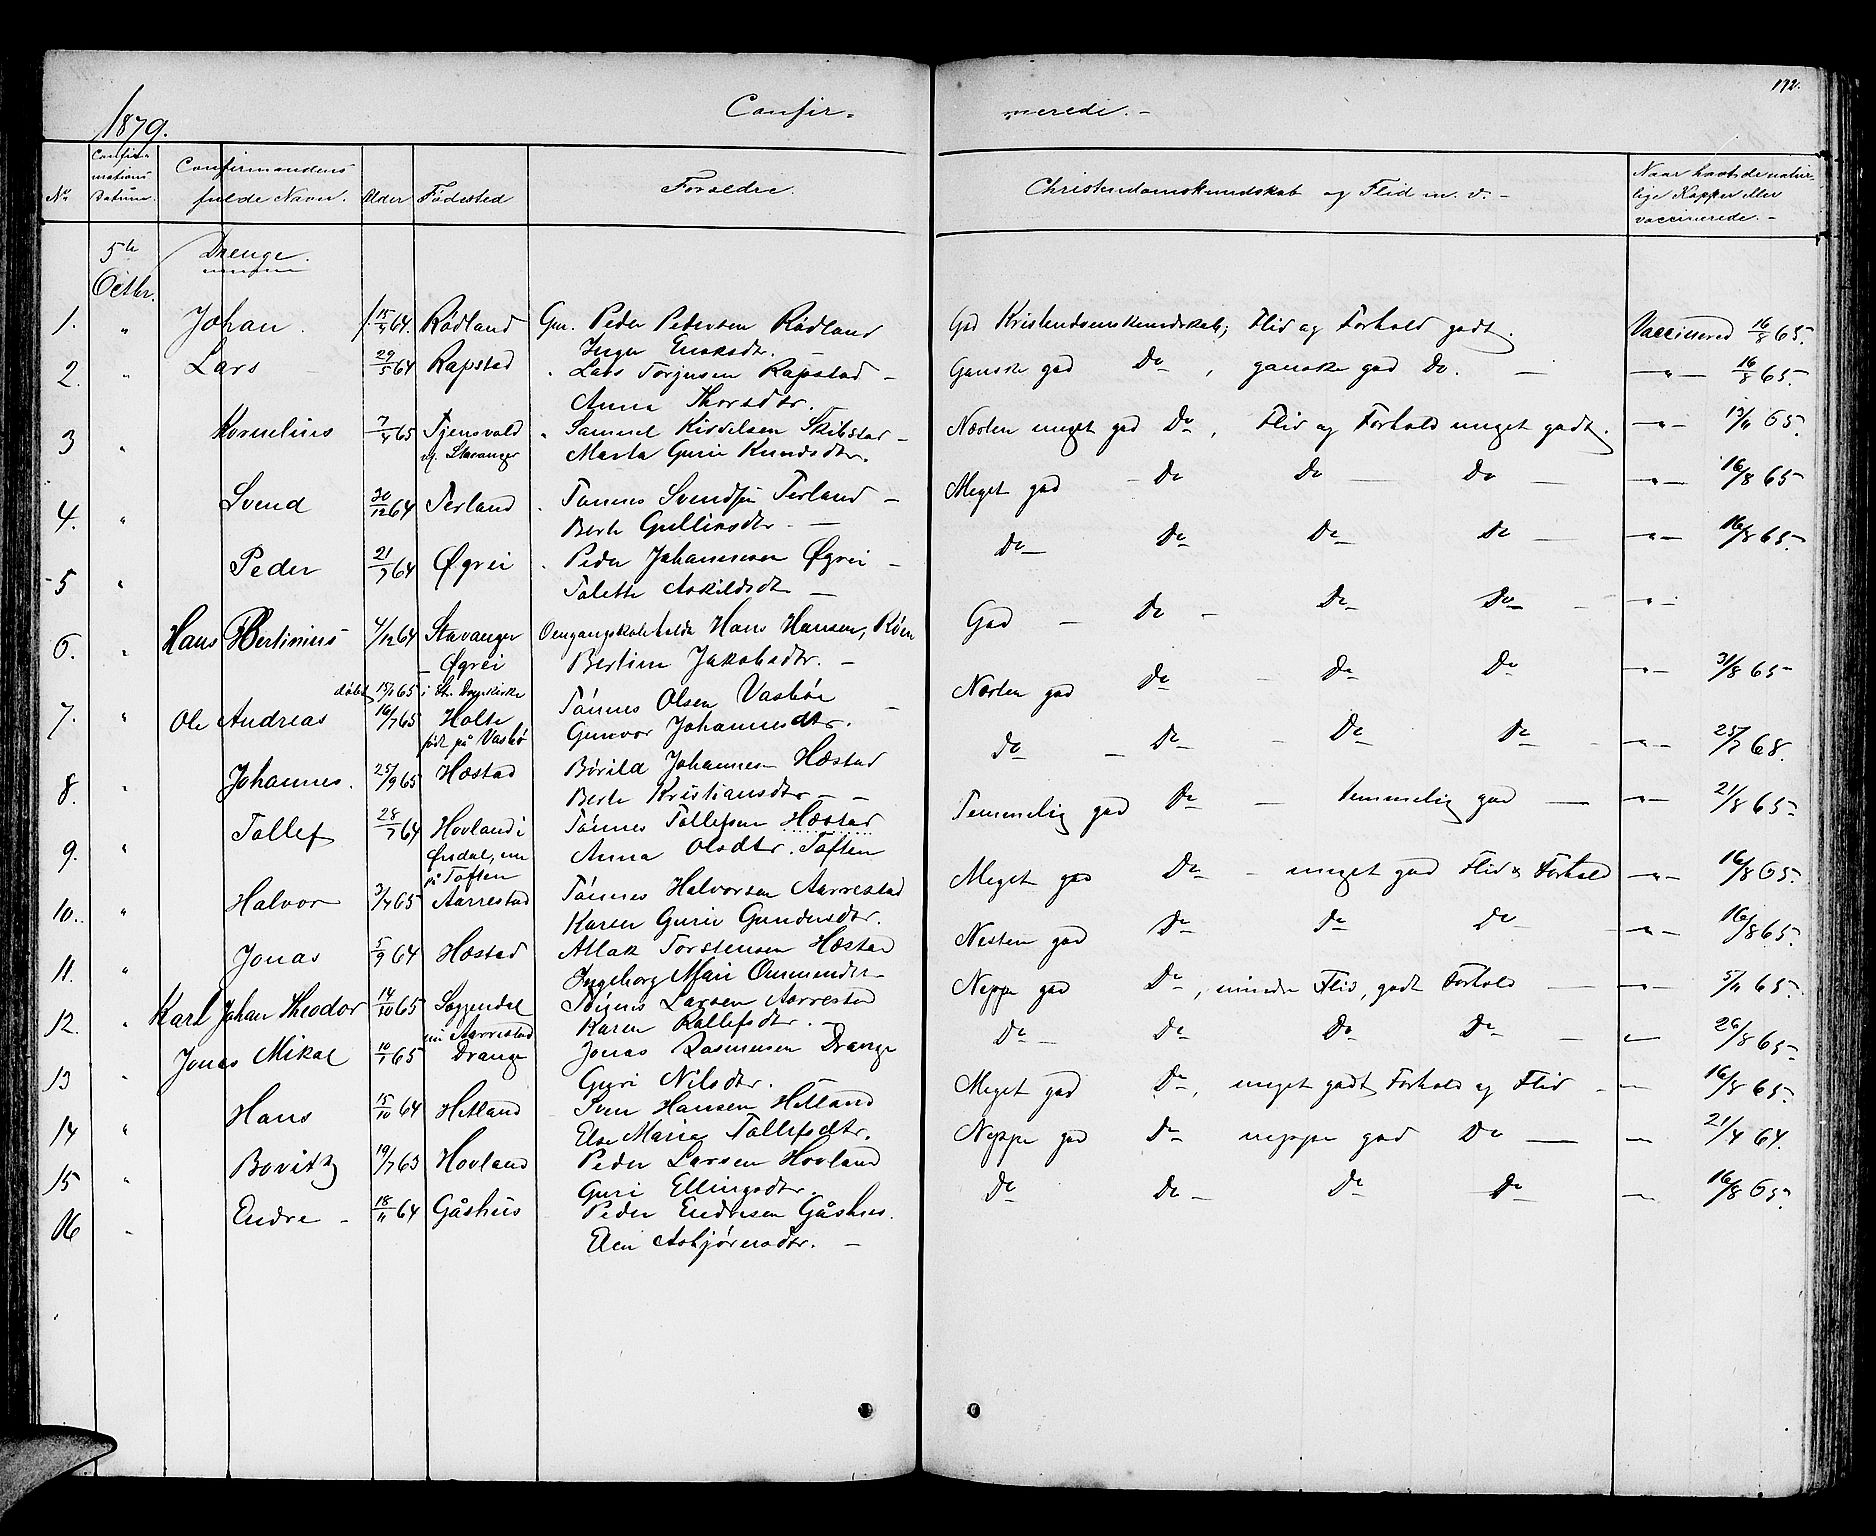 172.
1879.
Confir-
merede. -
No
Confirmations Datum.
Confirmandens fulde Navn.
Alder
Fødested
Forældre.
Christendomskundskab og Flid m. v. -
Naar havt de naturlige Kopper eller vaccinerede. -
5te Octbr.
Drenge.
1. " Johan. 15/4 64. Rødland Gm. Peder Pedersen Rødland God Kristendomskundskab; Flid og Forhold godt. Vaccinered 16/8 65.
Inger Eriksdtr. -
2. " Lars 29/5 64 Rapstad " Lars Torjusen Rapstad - Ganske god Do , ganske god Do. - -"- 16/8 65.
Anna Thorsdtr.
3 " Kornelius 7/4 65 Tjensvold " Samuel Kirvilsen Skibstad - Næsten meget god Do , Flid og Forhold meget godt. -"- 13/11 65.
v. Stavanger Marta Guri Knudsdtr.
4. " Svend 30/12 64 Terland " Tønnes Svendsen Terland - Meget god - Do Do - Do - -"- 16/8 65
Berte Gulliksdtr. -
5 " Peder 21/7 64 Øgrei " Peder Johannesen Øgrei - Do - Do Do Do - -"- 16/8 65.
Talette Askildsdtr -
6. " Hans Bertinius 4/12 64 Stavanger Omgangskoleholder Hans Hansen, God - Do - Do Do - -"-
- Øgrei Bertine Jakobsdtr. -
døbt 15/1 65 i St.
7. " Ole Andreas 16/7 65 Holte Tønnes Olsen Vasbø - Næsten god Do - Do Do -"- 31/8 65
født på Vasbø Gunvor Johannesdtr.
8. " Johannes. 25/9 65 Hæstad Børild Johannes- Hæstad Do - Do - Do Do - -"- 25/7 68.
Berte Kristiansdtr - -
9. " Tollef 28/7 64 Hovland i Tønnes Tollefsen Hæstad Temmelig god Do - temmelig god - -"- 21/8 65
Ørsdal, nu på Toften Anna Olsdtr. Toften
10. " Halvor 3/4 65 Aarrestad Tønnes Halvorsen Aarrestad Meget god Do - meget god Flid & Forhold -"- 16/8 65.
Karen Guri Gundersdtr.
11. " Jonas 5/9 64 Hæstad Atlak Torstensen Hæstad Nesten god Do Do Do - -"- 16/8 65.
Ingeborg Mari Ommundsdtr
12. " Karl Johan Theodor 14/10 65 Soggendal Tønnes Larsen Aarrestad Neppe god Do , mindre Flid, godt Forhold - -"- 5/11 65.
nu Aarrestad Karen Rollefsdtr. -
13 " Jonas Mikal 10/7 65 Drange Jonas Rasmusen Drange Do - Do Do Do - - 26/8 65
Guri Nilsdtr. -
14 " Hans 15/10 64 Hetland Sven Hansen Hetland Meget god Do , meget godt Forhold og Flid - - 16/8 65.
Else Maria Tollefsdtr.
15 " Bovitz 19/7 63 Hovland Peder Larsen Hovland Neppe god Do neppe god Do - - 21/4 64.
Guri Ellingsdtr.
16 " Endre - 18/11 64 Gåshus Peder Endresen Gåshus. Do Do - Do Do - 16/8 65
Elen Asbjørnsdtr. -